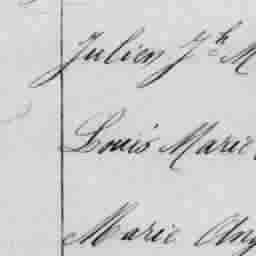 Julien Jh M
Louis Marie
Marie Ang